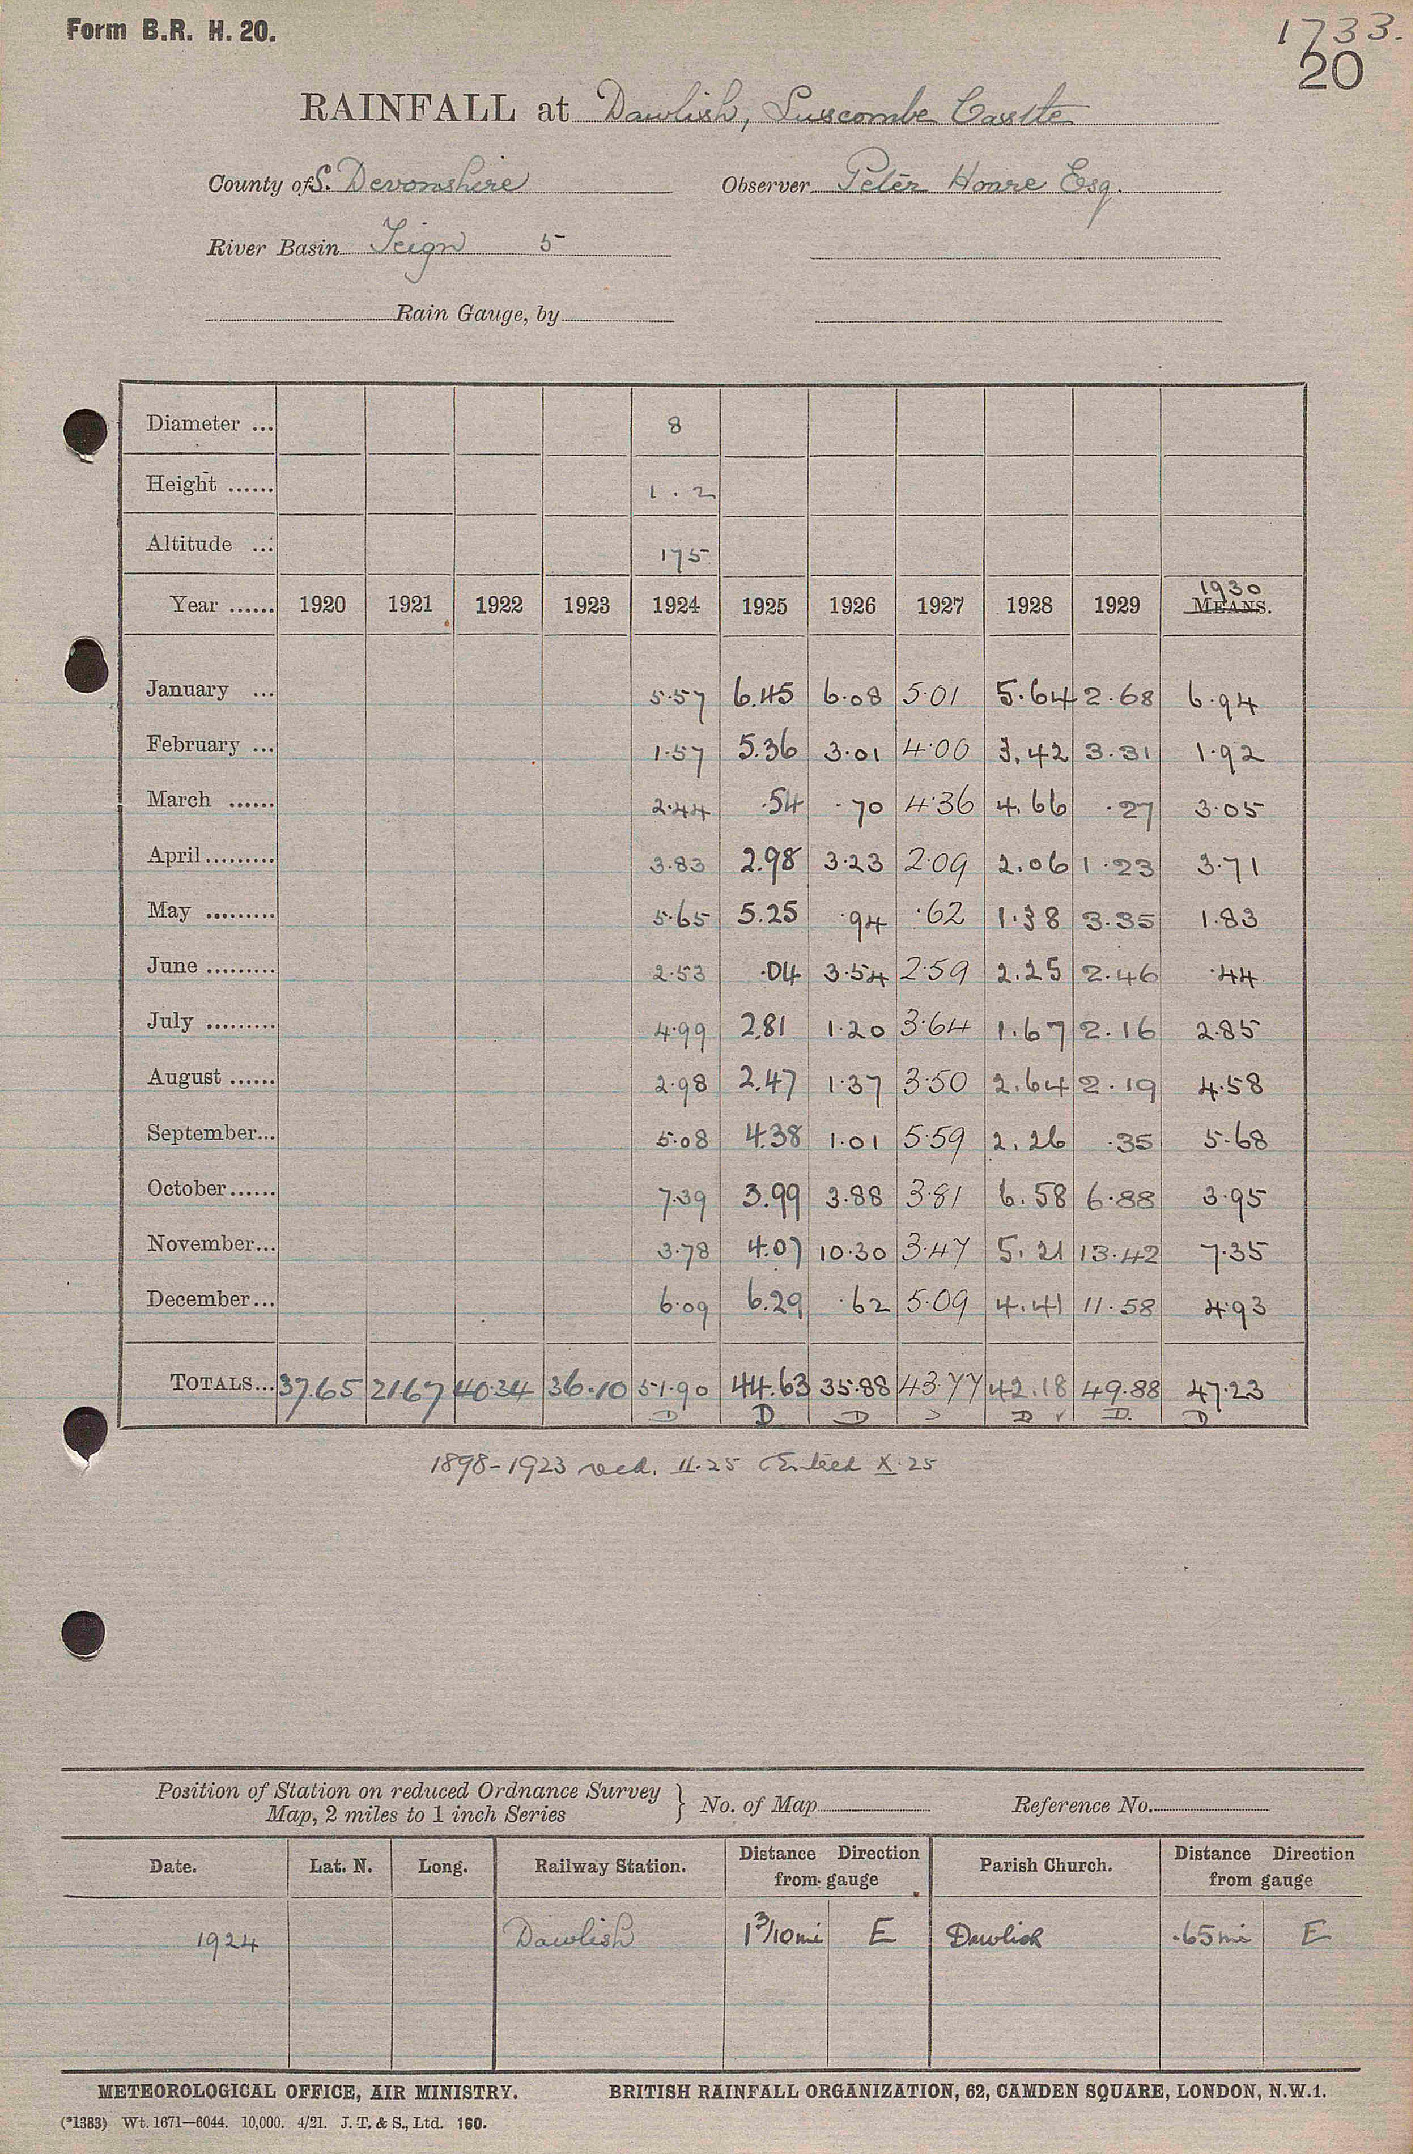 Form B.R. H. 20.
1733.
20
RAINFALL at Dawlish, Luscombe Castle
County of S. Devonshire Observer Peter Hoare Esq.
River Basin Teign 5
Rain Gauge, by
Diameter ... 8
Height ...... 1.2
Altitude ... 175
Year ...... 1920 1921 1922 1923 1924 1925 1926 1927 1928 1929 1930 MEANS.
January ... 5.57 6.45 6.08 5.01 5.64 2.68 6.94
February ... 1.57 5.36 3.01 4.00 3.42 3.31 1.92
March ...... 2.44 .54 .70 4.36 4.66 .27 3.05
April ......... 3.83 2.98 3.23 2.09 2.06 1.23 3.71
May ......... 5.65 5.25 .94 .62 1.38 3.35 1.83
June ......... 2.53 .04 3.54 2.59 2.25 2.46 .44
July ......... 4.99 2.81 1.20 3.64 1.67 2.16 2.85
August ...... 2.98 2.47 1.37 3.50 2.64 2.19 4.58
September... 5.08 4.38 1.01 5.59 2.26 .35 5.68
October ...... 7.39 3.99 3.88 3.81 6.58 6.88 3.95
November... 3.78 4.07 10.30 3.47 5.21 13.42 7.35
December... 6.09 6.29 .62 5.09 4.41 11.58 4.93
TOTALS... 37.65 21.67 40.34 36.10 51.90 44.63 35.88 43.77 42.18 49.88 47.23
D D D D D ✓ D. D
1898-1923 recd. II.25 Entered X.25
Position of Station on reduced Ordnance Survey Map, 2 miles to 1 inch Series } No. of Map Reference No.
Date. Lat. N. Long. Railway Station. Distance Direction from gauge Parish Church. Distance Direction from gauge
1924 Dawlish 1 3/10 mi E Dawlish .65 mi E
METEOROLOGICAL OFFICE, AIR MINISTRY. BRITISH RAINFALL ORGANIZATION, 62, CAMDEN SQUARE, LONDON, N.W.1.
(*1383) Wt. 1671—6044. 10,000. 4/21. J. T. & S., Ltd. 160.